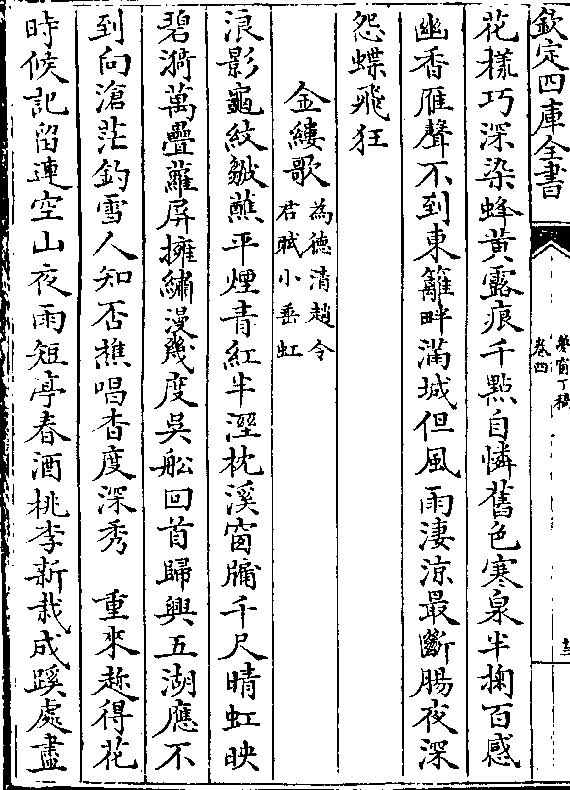 欽定四庫全書
夢窗丁稿
卷四
花樣巧深染蜂黃露痕千點自憐舊色寒泉半掬百感
幽香雁聲不到東籬畔滿城但風雨淒涼最斷腸夜深
怨蝶飛狂
金縷歌為德清趙令
君賦小垂虹
浪影龜紋皺蘸平煙青紅半溼枕溪窗牖千尺晴虹映
碧漪萬疊蘿屏擁繡漫幾度吳舩回首歸興五湖應不
到向滄茫釣雪人知否樵唱杳度深秀　重來趂得花
時候記留連空山夜雨短亭春酒桃李新栽成蹊處盡